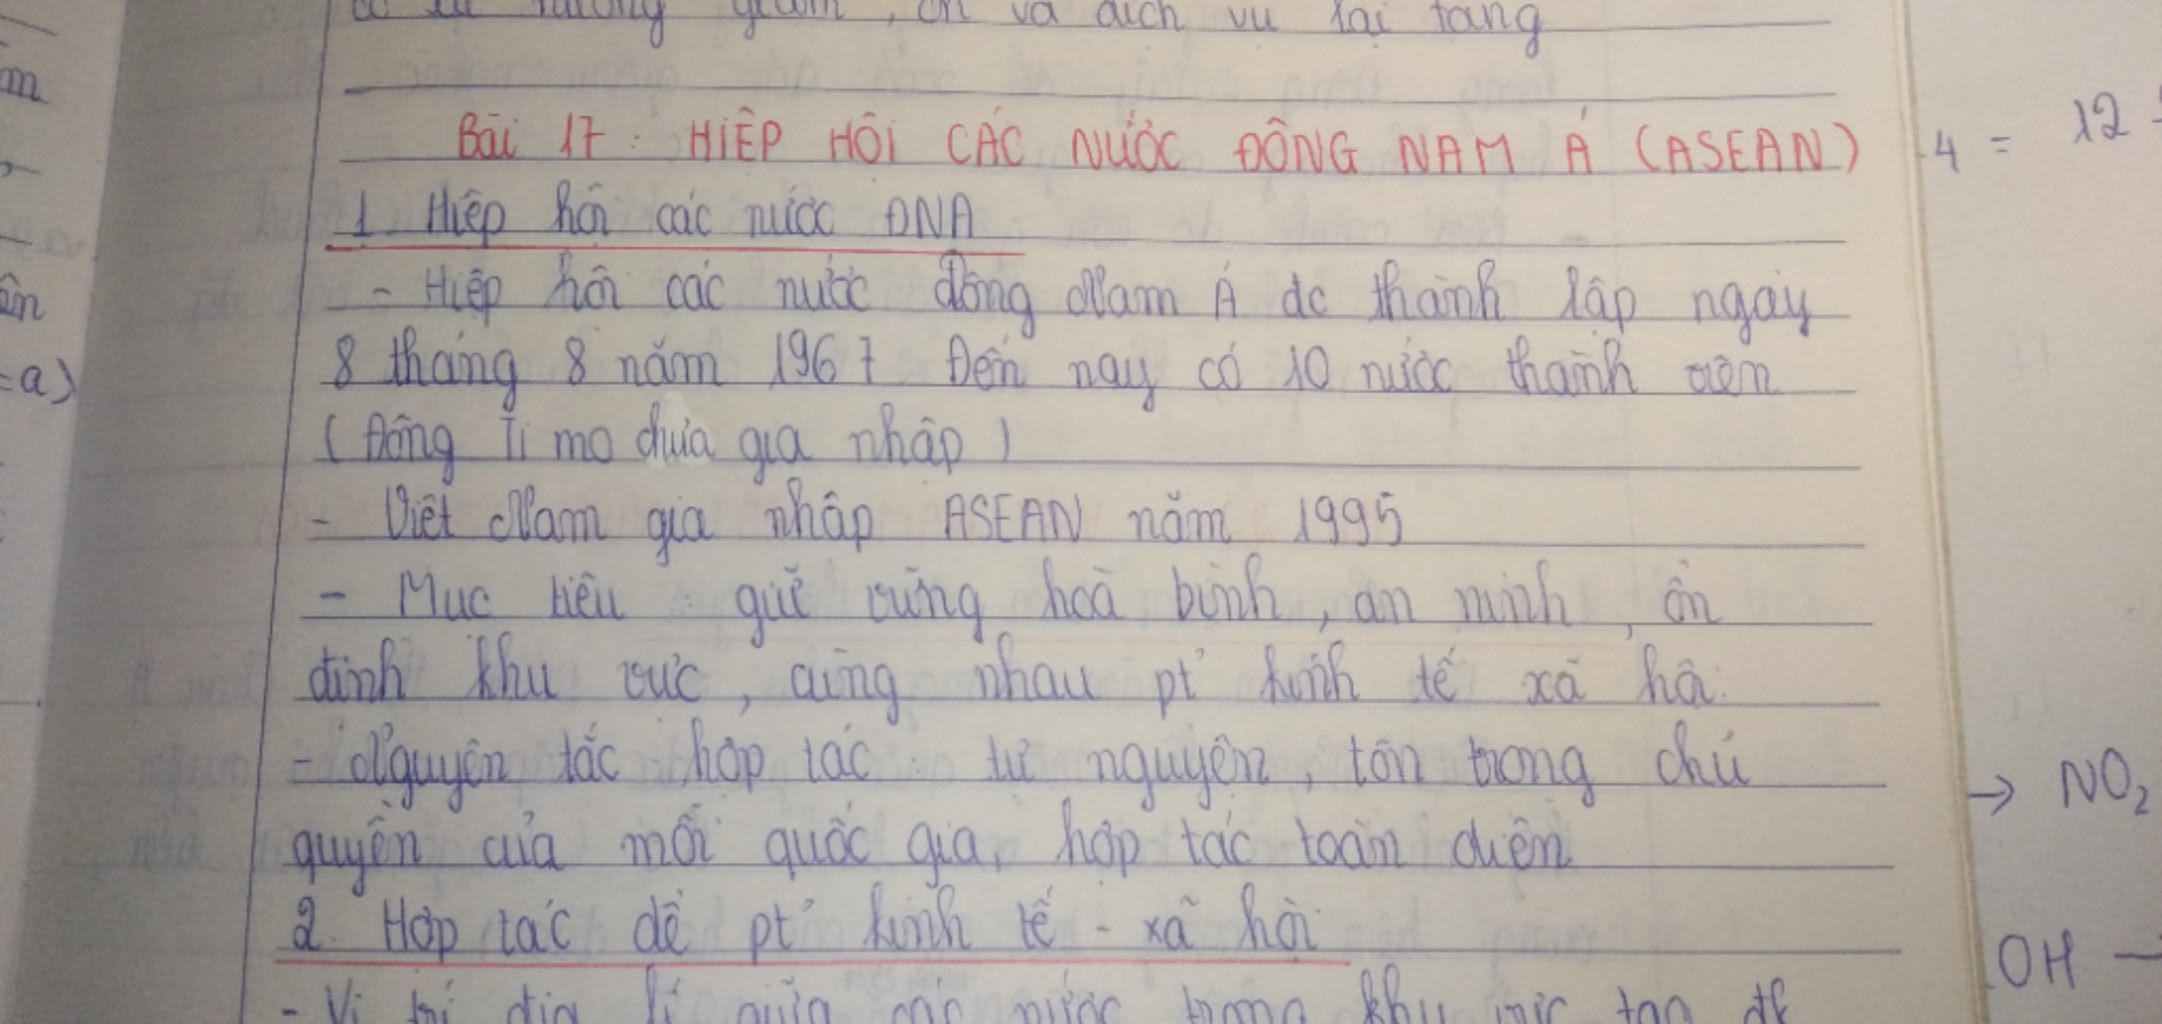 giảm, CN và dịch vụ lại tăng
Bài 17: HIỆP HỘI CÁC NƯỚC ĐÔNG NAM Á (ASEAN)
1. Hiệp hội các nước ĐNA
- Hiệp hội các nước Đông Nam Á dc thành lập ngày
8 tháng 8 năm 1967 Đến nay có 10 nước thành viên
(Đông Ti mo chưa gia nhập)
- Việt Nam gia nhập ASEAN năm 1995
- Mục tiêu: giữ vững hoà bình, an minh, ổn
định khu vực, cùng nhau pt' kinh tế xã hội.
- Nguyên tắc hợp tác: tự nguyện, tôn trọng chủ
quyền của mỗi quốc gia, hợp tác toàn diện
2. Hợp tác để pt' kinh tế - xã hội
- Vị trí địa lí giữa các nước trong khu vực tạo đk
m
ên
=a)
4 = 12
→ NO₂
OH